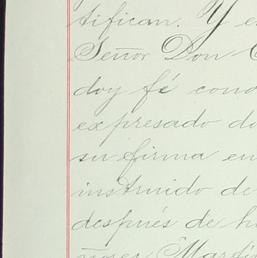 tifican. Y e
Señor Don
doy fé cono
expresado do
su firma en
instruido de
después de h
Martí